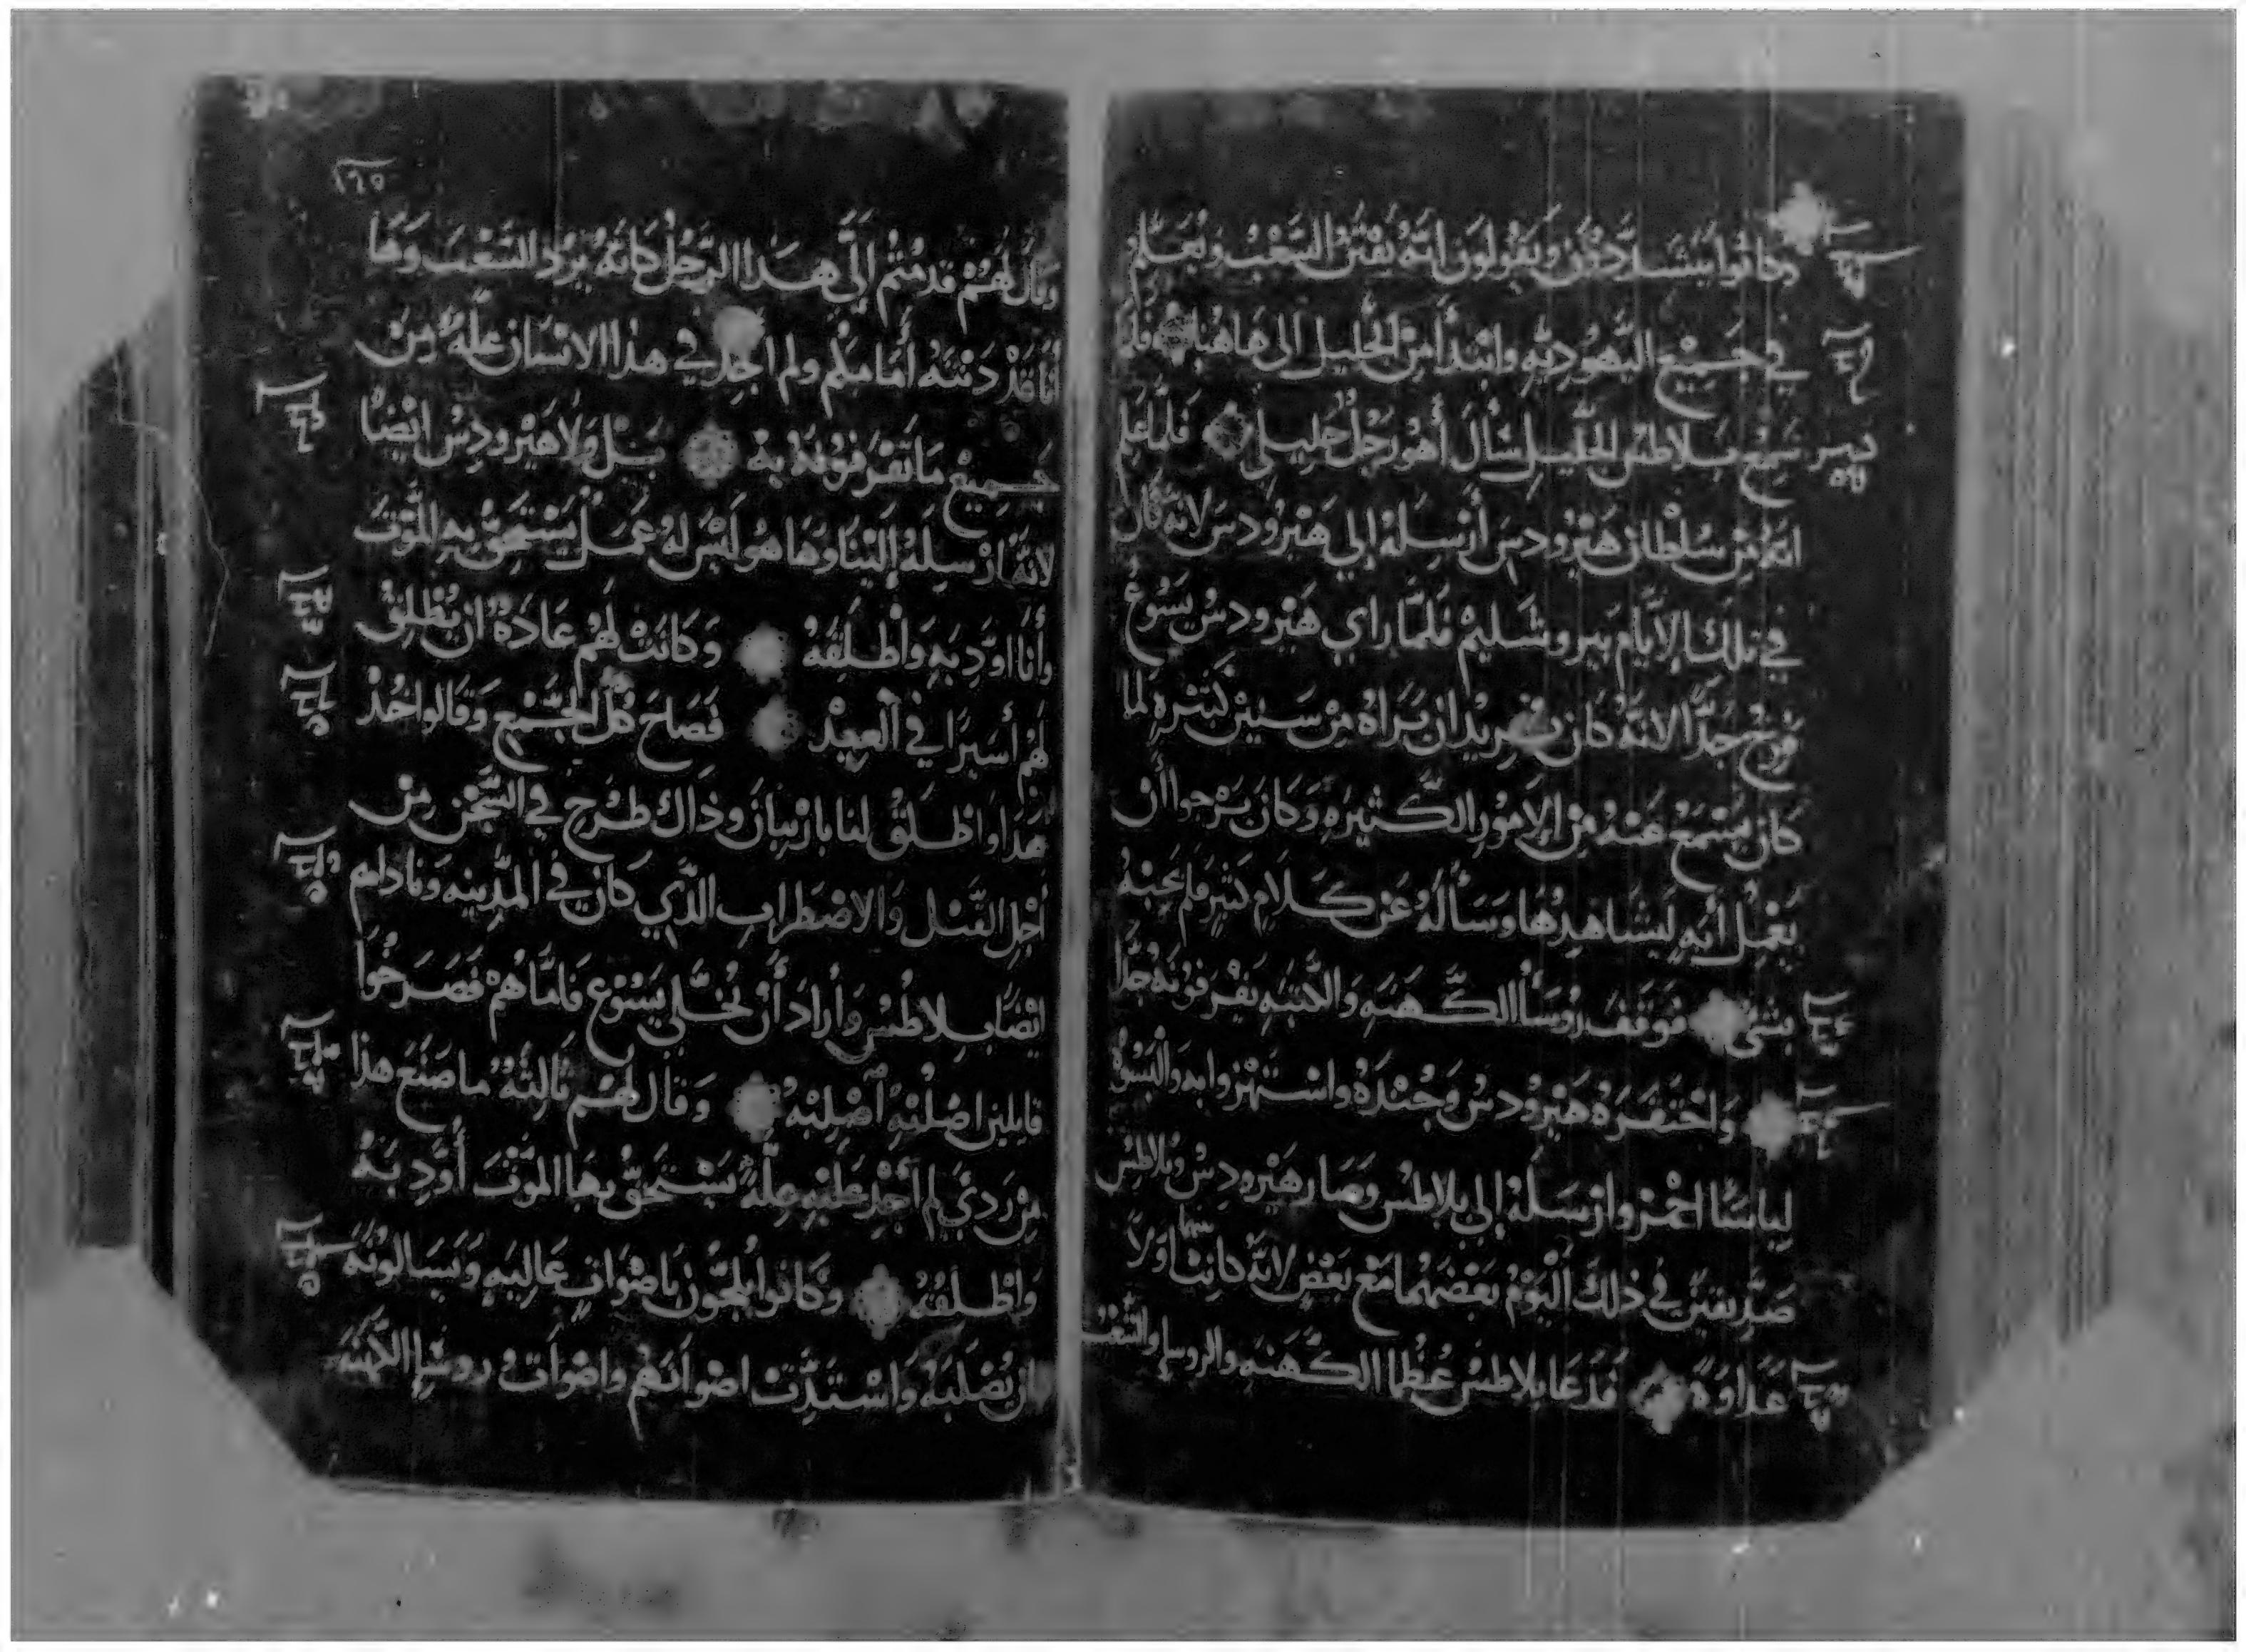 وكانوا يتشددون ويقولون انه يفتن الشعب ويعلم
في جميع اليهوديه وابتدأ من الجليل الى هاهنا فلما
سمع بلاطس الجليل سأل أهو رجل جليلي فلما علم
انه من سلطان هيرودس أرسله إلي هيرودس لانه كان
في تلك الايام بيروشليم فلما راي هيرودس يسوع
فرح جدا لانه كان يريد ان يراه من سنين كثيره لما
كان يسمع عنه من الامور الكثيره وكان يرجوا أن
يعمل أيه ليشاهدها وسأله عن كلام كثير فلم يجبه
بشي فوقف رؤسأ الكهنه والكتبه يقرفونه جدا
واحتقره هيرودس وجنده واستهزوا به والبسوه
لباسا احمر وارسله إلى بلاطس وصار هيرودس وبلاطس
صديقين في ذلك اليوم بعضهما مع بعض لانه كانت بينهما اولا
عداوة فدعا بلاطس عظما الكهنه والروسا والشعب
١٦٥
وقال لهم قدمتم إلي هذا الرجل كانه يرد الشعب وها
أنا قدمته أمامكم ولم اجد في هذا الانسان علة من
جميع ما تقرفونه به بل ولا هيرودس ايضا
لانه ارسله إلينا وها هو ليس له عمل يستحق به الموت
وأنا اودبه واطلقه وكانت لهم عادة ان يطلق
لهم أسيرا في العيد فصاح كل الجمع وقالوا خذ
هذا واطلق لنا باربان وذاك طرح في السجن من
اجل القتل والاضطراب الذي كان في المدينه وناداهم
ايضا بلاطس وأراد أن يخلي يسوع فاما هم فصرخوا
قايلين اصلبه اصلبه وقال لهم ثالثة ما صنع هذا
من ردي لم أجد عليه علة يستحق بها الموت أودبه
واطلقه وكانوا يلجون باصوات عاليه ويسالونه
ان يصلبه واشتدت اصواتهم واصوات روسا الكهنه